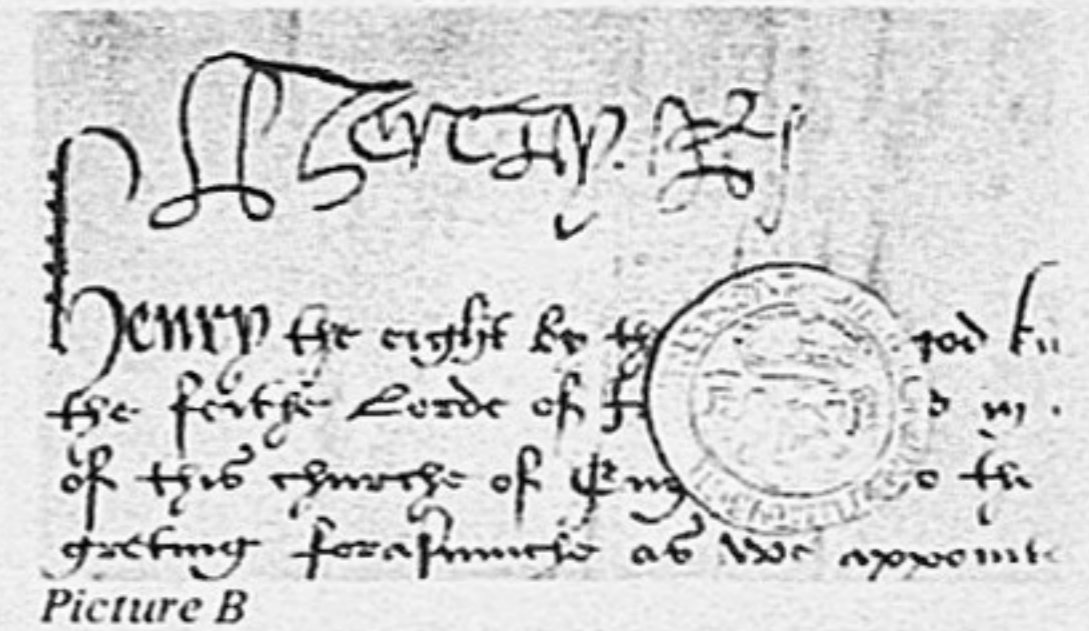 Henry R
Henry the eight by th god kin
the feithe Lorde of
of this churche of Eng th
greting forasmuche as we appoint
Picture B